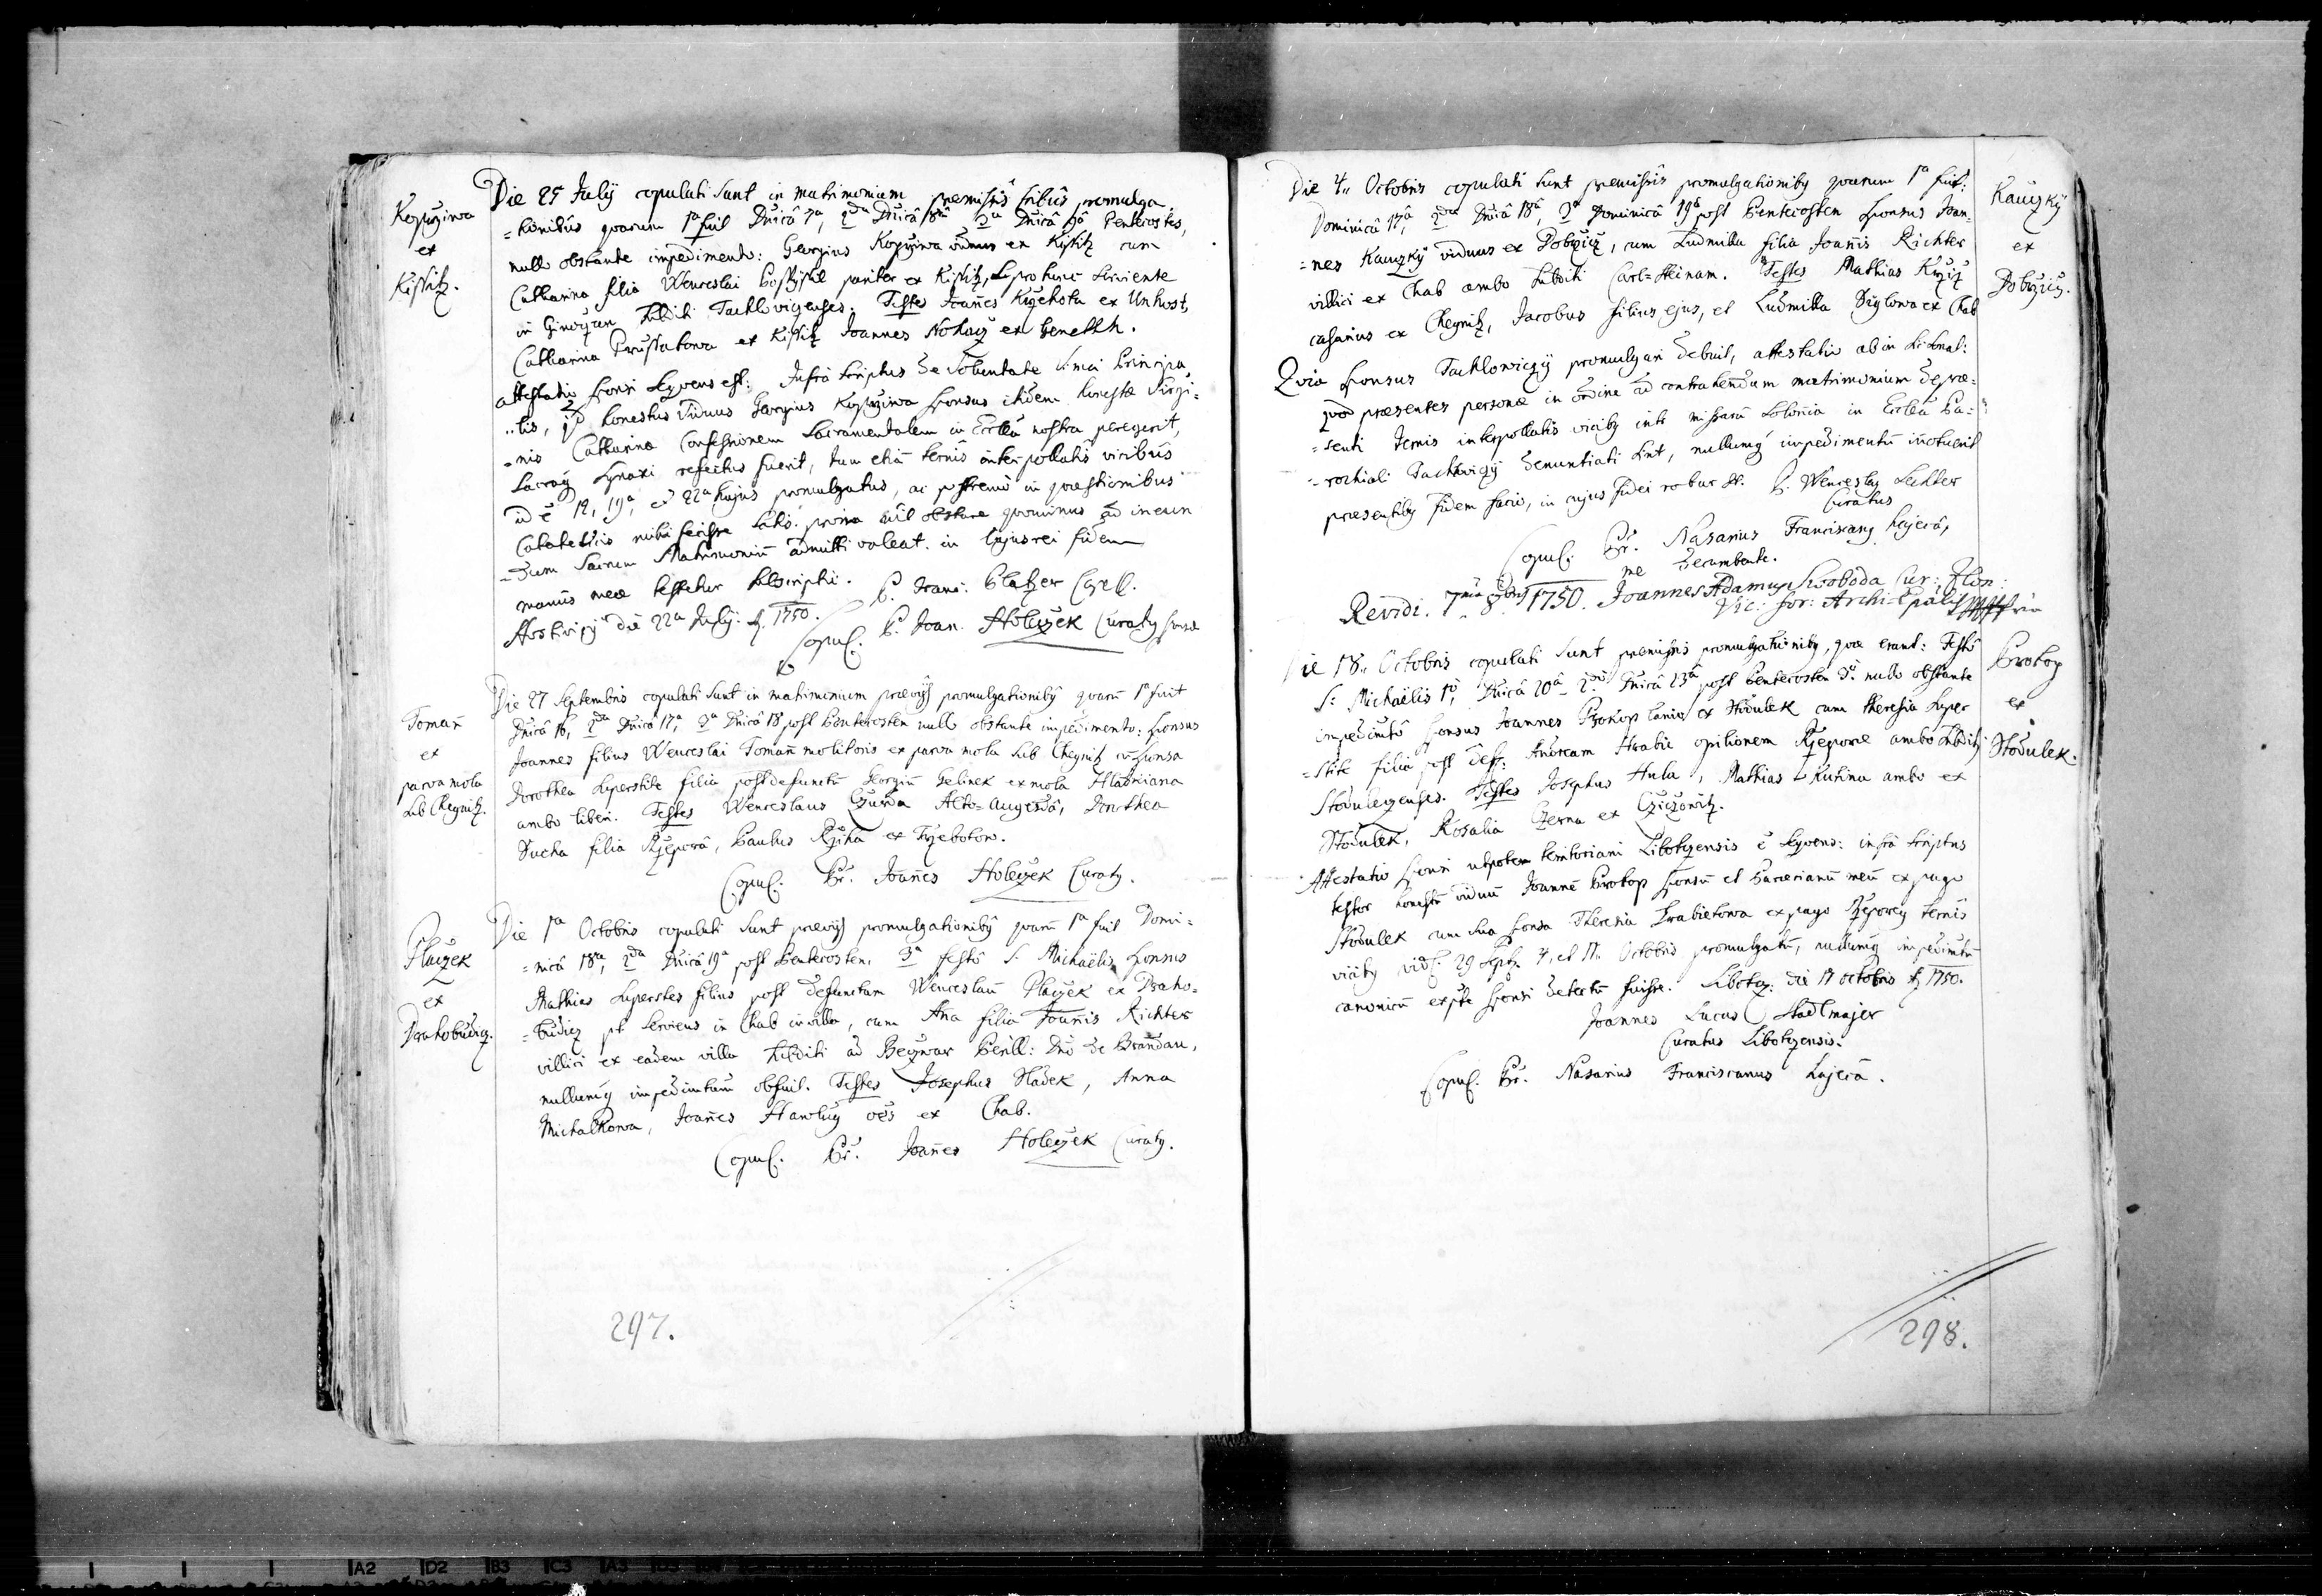 Kopřziwa
ex
Kistitz.
Die 25 Julij copulati sunt in matrimonium premissis tribus promulga
=tionibus quarum 1a fuit Dnicâ 7a, 2da Dnicâ 8a 3a Dnicâ 9a Pentecostes,
nullo obstante impedimento: Georgius Kopřziwa viduus ex Kistitz cum
Catharina filia Wenceslai Postÿssil pariter ex Kistitz, et pro tunc serviente
in Ginoczan subditi Tachlovizenses. Testes Joañes Krzehota ex Unhost,
Catharina ex Kistitz Joannes Nohacz ex
attestatio sponsi sequens est: Infra scriptus de voluntate
..tis, qd honestus viduus Georgius Kopřziwa sponsus itidem honestæ virgi=
=nis Catharinæ Confessionem Sacramentalem in Ecclâ nostra peregerit,
sacraq sÿnaxi refectus fuerit, tum etiã ternis interpollatis vicibus
id ê 12, 19a, et 22a hujus promulgatus, ac postremo in quæstionibus
Catecheticis mihi fecisse satis. proin nil obstare quominus ad ineun
=dum Sacrum Matrimoniũ admitti valeat. in cujus rei fidem
manus meæ testetur subscriptio. P. Franc: Platzer Capell.
Hostiwiz die 22a Julij: A. 1750.
Copul. P. Joan. Holeczek Curatq
Tomañ
ex
parva mola
sub Chegnitz.
Die 27 Septembris copulati sunt in matrimonium præviis promulgationibq quarũ 1a fuit
Dnicâ 16, 2da Dnicâ 17a, 3a Dnicâ 18 post Pentecosten nullo obstante impedimento: sponsus
Joannes filius Wenceslai Tomañ molitoris ex parva mola sub Chegnitz cũ sponsa
Dorothea superstite filia post defunctũ Georgiũ Gelinek ex mola Hladniana
ambo liberi. Testes Wenceslaus Czurda Alto- Dorothea
Sucha filia Rzeporâ, Paulus Rziha ex Trzebotow.
Copul. Pr. Joañes Holeczek Curatq.
Placzek
ex
Drahobudicz.
Die 1a Octobris copulati sunt præviis promulgationibq quarũ 1a fuit Domi=
=nicâ 18a, 2da Dnicâ 19a post Pentecosten. 3a festô S. Michaëlis sponsus
Mathias superstes filius post defunctum Wenceslaũ Placzek ex Draho=
=budicz pt. serviens in Chab in villa, cum Aña filia Joañis Richter
villici ex eadem villa subditi ad Beczwar Perill: Dno de Brandau,
nullumq impedimtum obfuit. Testes Josephus Hladek, Anna
Michalkowa, Joañes Hawluy oẽs ex Chab.
Copul. Pr. Joañes Holeczek Curatq.
297.
Die 4. Octobris copulati sunt præmissis promulgationibq quarum 1a fuit:
Dominicâ 17â, 2da Dnicâ 18â, 3a Dominicâ 19â post Pentecosten sponsus Joan=
=nes Kauczkÿ viduus ex Dobrzicz, cum Ludmilla filia Joañis Richter
villici ex Chab ambo subditi Carl=Steinam. Testes Mathias Krziz
casarius ex Chegnitz, Jacobus filius ejus, et Ludmilla ex Chab
Quia sponsus Tachlowiczij promulgari debuit, attestatio abin
quod præsentes personæ in ordine ad contrahendum matrimonium de præ=
=senti ternis interpollatis vicibq intr missarũ Solõnia in Ecclâ Pa=
=rochiali Tachlowizij denuntiati sint, nullumq impedimentũ iñotuerit
præsentibq fidem facio, in cujus fidei robur &. P. Wenceslaq Lechter
Curatus
Copul. Pr. Nasarius Franciscanq
me decumbente.
Kauczkÿ
ex
Dobrzicz.
Revidi. 7ma 8bris 1750. Joannes Adamus Swoboda Cur:
Vic: for: Archi-Epalis
Die 18. Octobris copulati sunt præmissis promulgationibq, quæ erant: Festô
S: Michaëlis 1a, Dnicâ 20â 2da Dnicâ 23a post Pentecosten 3a nullo obstante
impedimtô sponsus Joannes Prokop lanio ex Stodulek cum Theresia super
=stite filia post deff: Andream Hrabie opilionem Rzeporæ ambo subditi
Stodulezenses. Testes Josephus Hula, Mathias Kutina ambo ex
Stodulek, Rosalia Czerna ex Cziczowitz.
Attestatio sponsi utpote territoriani Libotzensis ê sequens: infra scriptus
testor honestũ viduũ Joannẽ Prokop sponsũ et Parœcianũ meũ ex pago
Stodulek cum sua sponsa Theresia Hrabietowa ex pago Rzeporey ternis
vicibq videl. 29 Sept. 4, et 11. Octobris promulgatũ, nullumq impedimtũ
canonicũ ex pte sponsi detectũ fuisse. Libotz: die 17 octobris A. 1750.
Joannes Lucas Stadlmajer
Curatus Libotzensis.
Copul. Pr. Nasarius Franciscanus
Prokop
ex
Stodulek.
298.